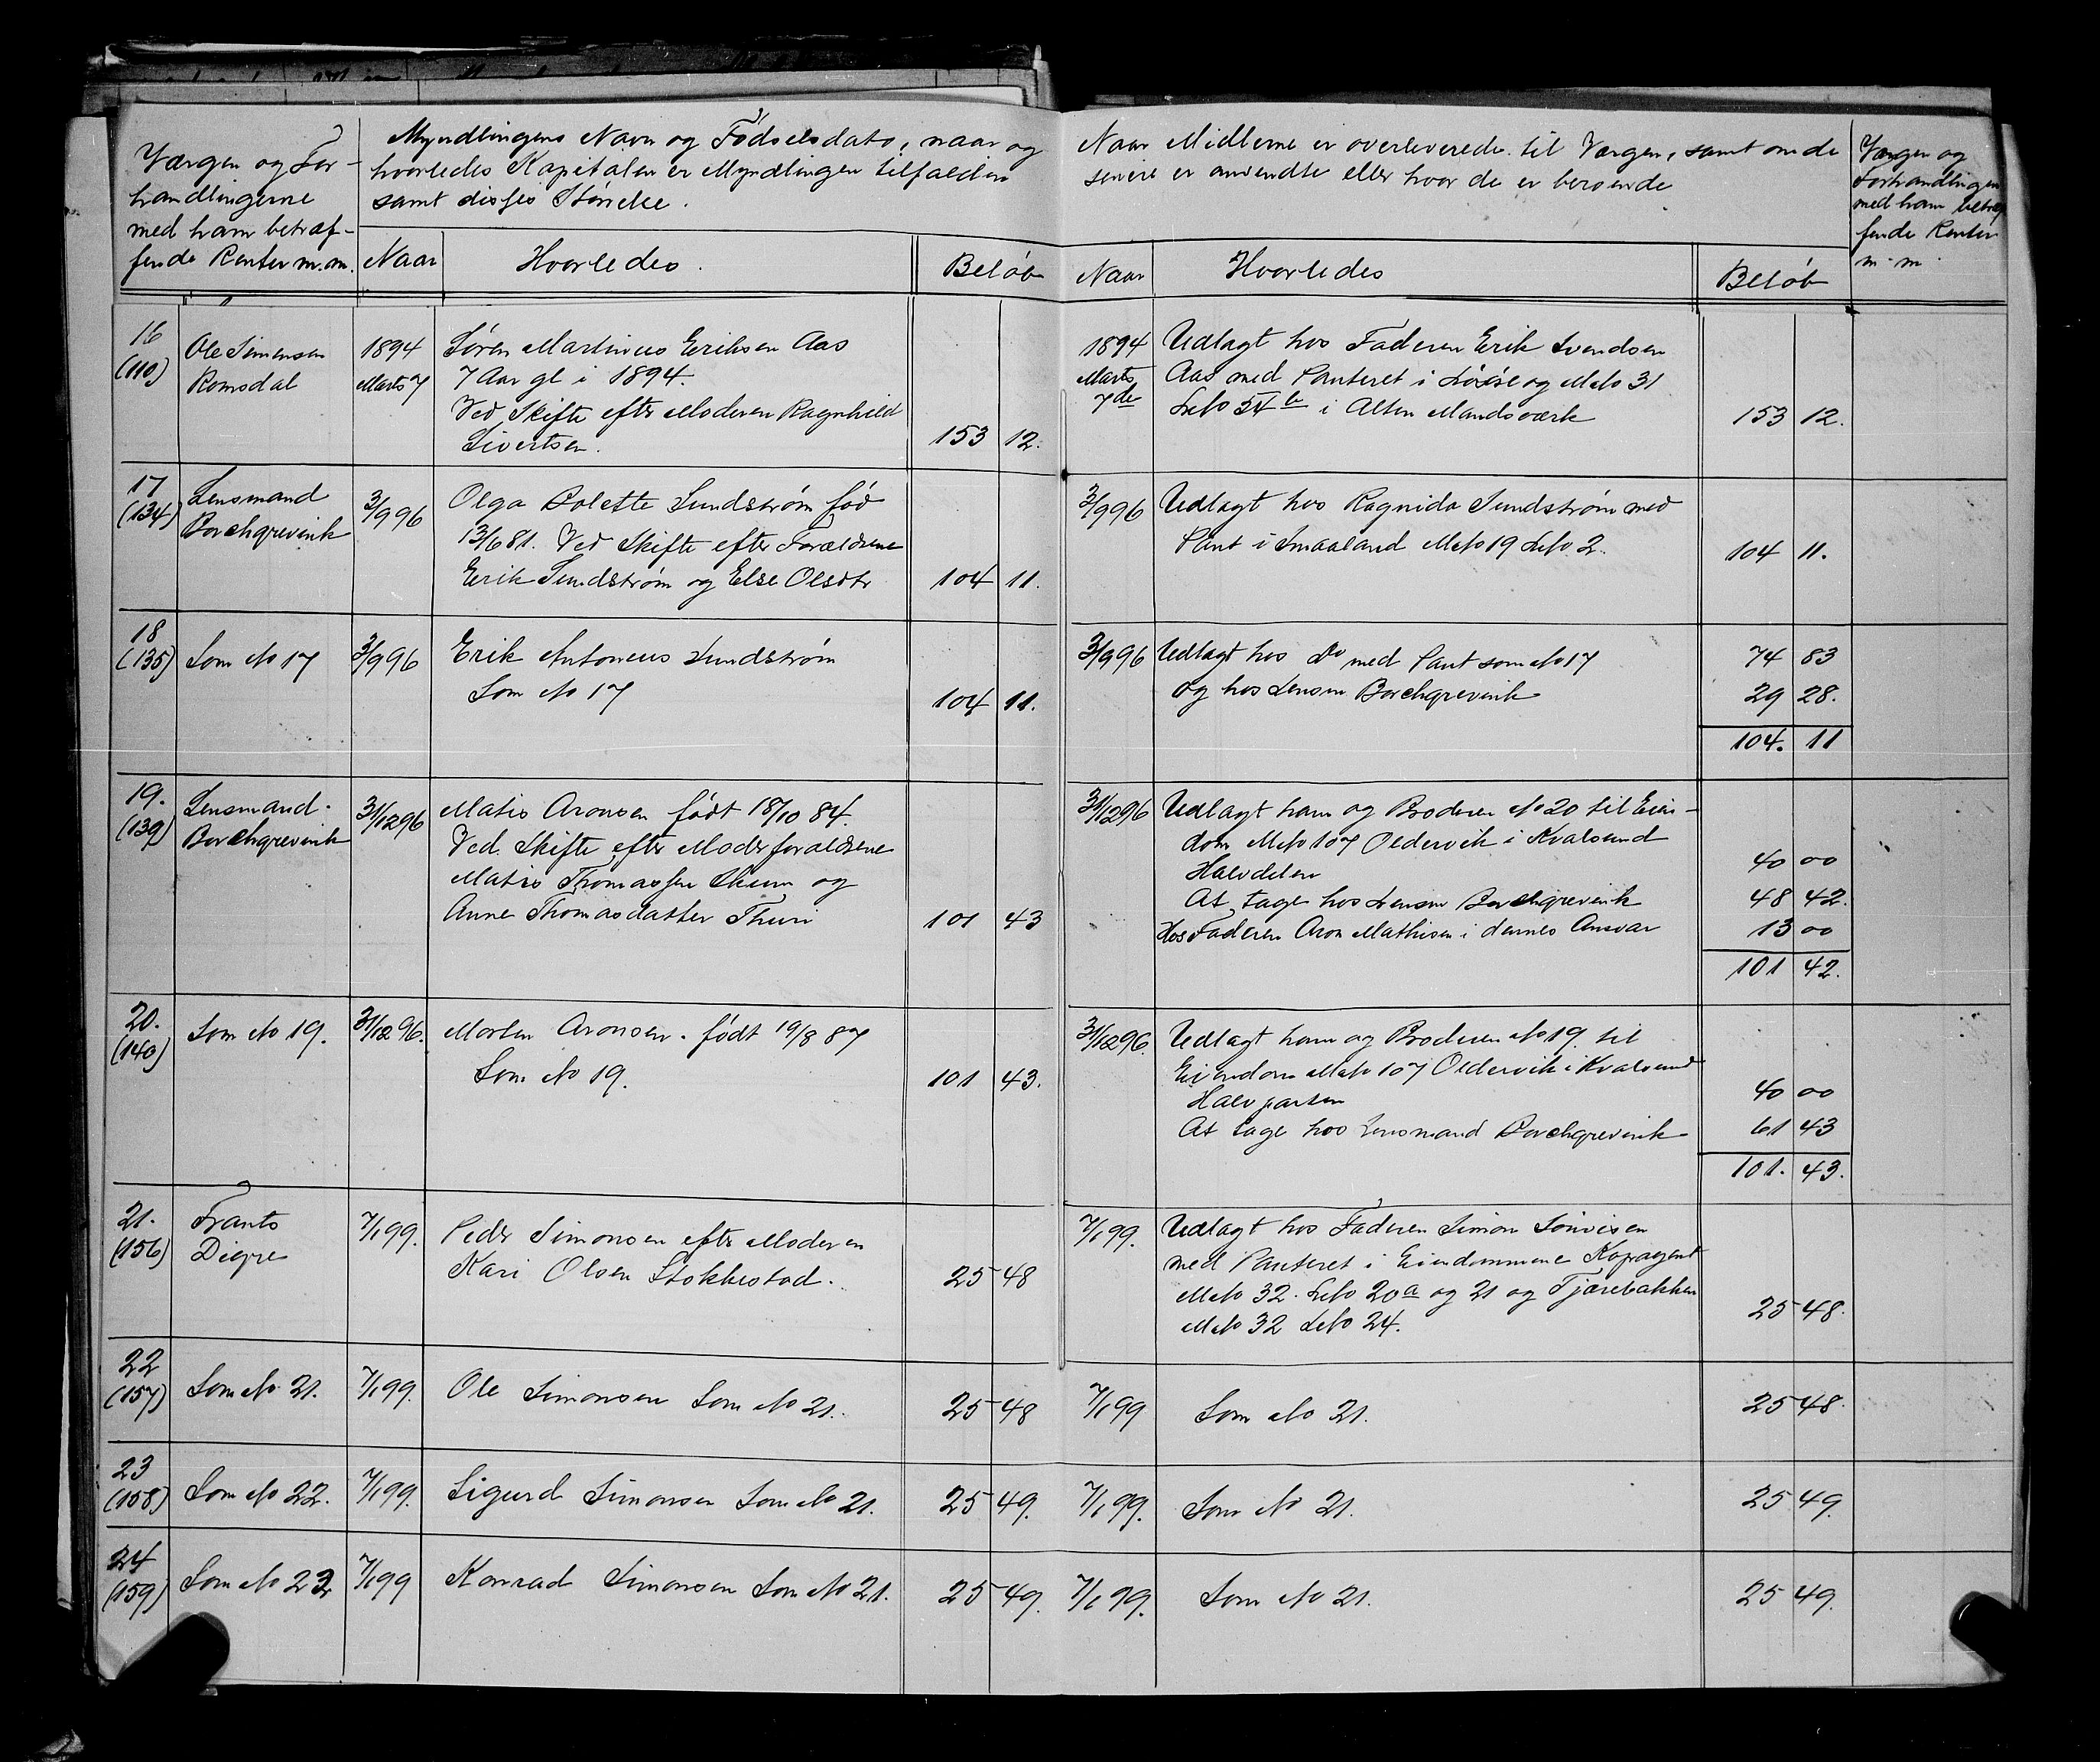 Værgen og For-
handlingerne
med ham betræf-
fende Renter m.m.
Myndlingens Navn og Fødselsdato, naar og
hvorledes Kapitalen er Myndlingen tilfalden
samt disses Størrelse.
Naar
Hvorledes.
Beløb
Naar Midlerne er overleverede til Værgen, samt om de
senere er anvendte eller hvor de er beroende
Naar
Hvorledes
Beløb
Værgen og
Forhandlingen
med ham betræf
fende Renter
m. m.
16
(110)
Ole Simensen
Romsdal
1894
Marts 7
Søren Martinus Eriksen Aas
7 Aar gl i 1894.
Ved Skifte efter Moderen Ragnhild
Sivertsen.
153 12.
1894
Marts
7de
Udlagt hos Faderen Erik Svendsen
Aas med Panteret i og Mno 31
Lno 54 b i Alten Mandsværk
153 12.
17
(134)
Lensmand
Borchgrevink
3/9 96
Olga Bolette Sundstrøm fød
13/6 81. Ved Skifte efter Forældrene
Erik Sundstrøm og Else Olsdtr
104 11.
3/9 96
Udlagt hos Ragnida Sundstrøm med
Pant i Smaaland Mno 19 Lno 2.
104 11.
18
(135)
Som No 17
3/9 96
Erik Antoneus Sundstrøm
Som No 17
104 11.
3/9 96
Udlagt hos Do med Pant som No 17
og hos Lensm Borchgrevink
74 83
29 28.
104. 11
19.
(139)
Lensmand
Borchgrevink
31/12 96
Matis Aronsen født 18/10 84.
Ved Skifte efter Moderforældrene
Matis Thomassen og
Anne Thomasdatter Thuri
101 43
31/12 96
Udlagt ham og Broderen No 20 til Eien-
dom Mno 107 Oldervik i Kvalsund
Halvdelen
40 00
At tage hos Lensm Borchgrevink
48 42.
Hos Faderen Aron Mathisen i dennes Ansvar
13 00
101 42.
20.
(140)
Som No 19.
31/12 96.
Morten Aronsen. født 19/8 87
Som No 19.
101 43.
31/12 96.
Udlagt ham og Broderen No 19 til
Eiendom Mno 107 Oldervik i Kvalsund
Halvparten
40 00
At tage hos Lensmand Borchgrevink
61 43
101. 43.
21.
(156)
Frants
Digre
7/1 99.
Peder Simonsen efter Moderen
Kari Olsen Stokkestad.
25 48
7/1 99.
Udlagt hos Faderen Simon
med Panteret i Eiendommene Kopragent
Mno 32. Lno 20a og 21 og Tjærebakken
Mno 32 Lno 24.
25 48.
22
(157)
Som No 21.
7/1 99.
Ole Simonsen Som No 21.
25 48
7/1 99
Som No 21.
25 48.
23
(158)
Som No 22.
7/1 99.
Sigurd Simonsen Som No 21.
25 49.
7/1 99.
Som No 21.
25 49.
24
(159)
Som No 23
7/1 99
Konrad Simonsen Som No 21.
25 49.
7/1 99.
Som No 21.
25 49.